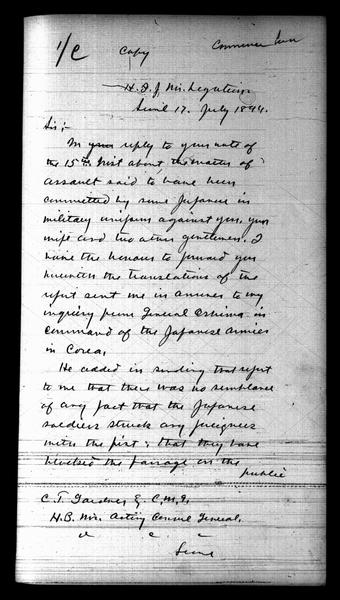 1/c
Copy
H. I. J. M's. Legation
Seoul 17. July 1894.
Sir :-
In your reply to your note of
the 15th inst about the matter of
assault said to have been
committed by some Japanese in
military uniform against you, your
wife and two other gentlemen, I
have the honour to forward you
herewith the translations of the
report sent me in answer to my
inquiry from General Oshima in
command of the Japanese armies
in Corea.
He added in sending that report
to me that there was no semblance
of any fact that the Japanese
soldiers struck any foreigners
with the fist & that they have
blocked the passage on the
public
C. T. Gardner, Esq. C.M.G.
H.B. M's. Acting Consul General,
Seoul